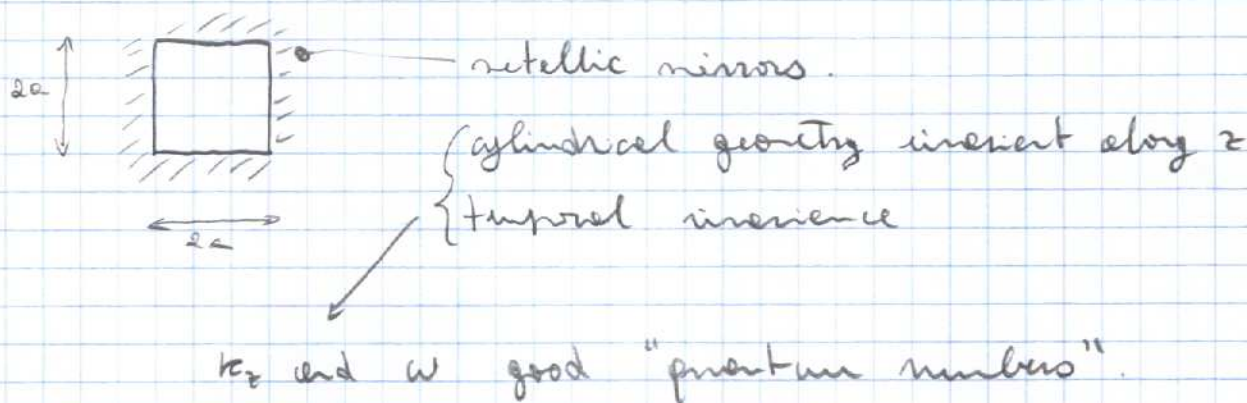 2a
metallic mirrors.
cylindrical geometry invariant along z
temporal invariance
2a
k_z and ω good "quantum numbers".